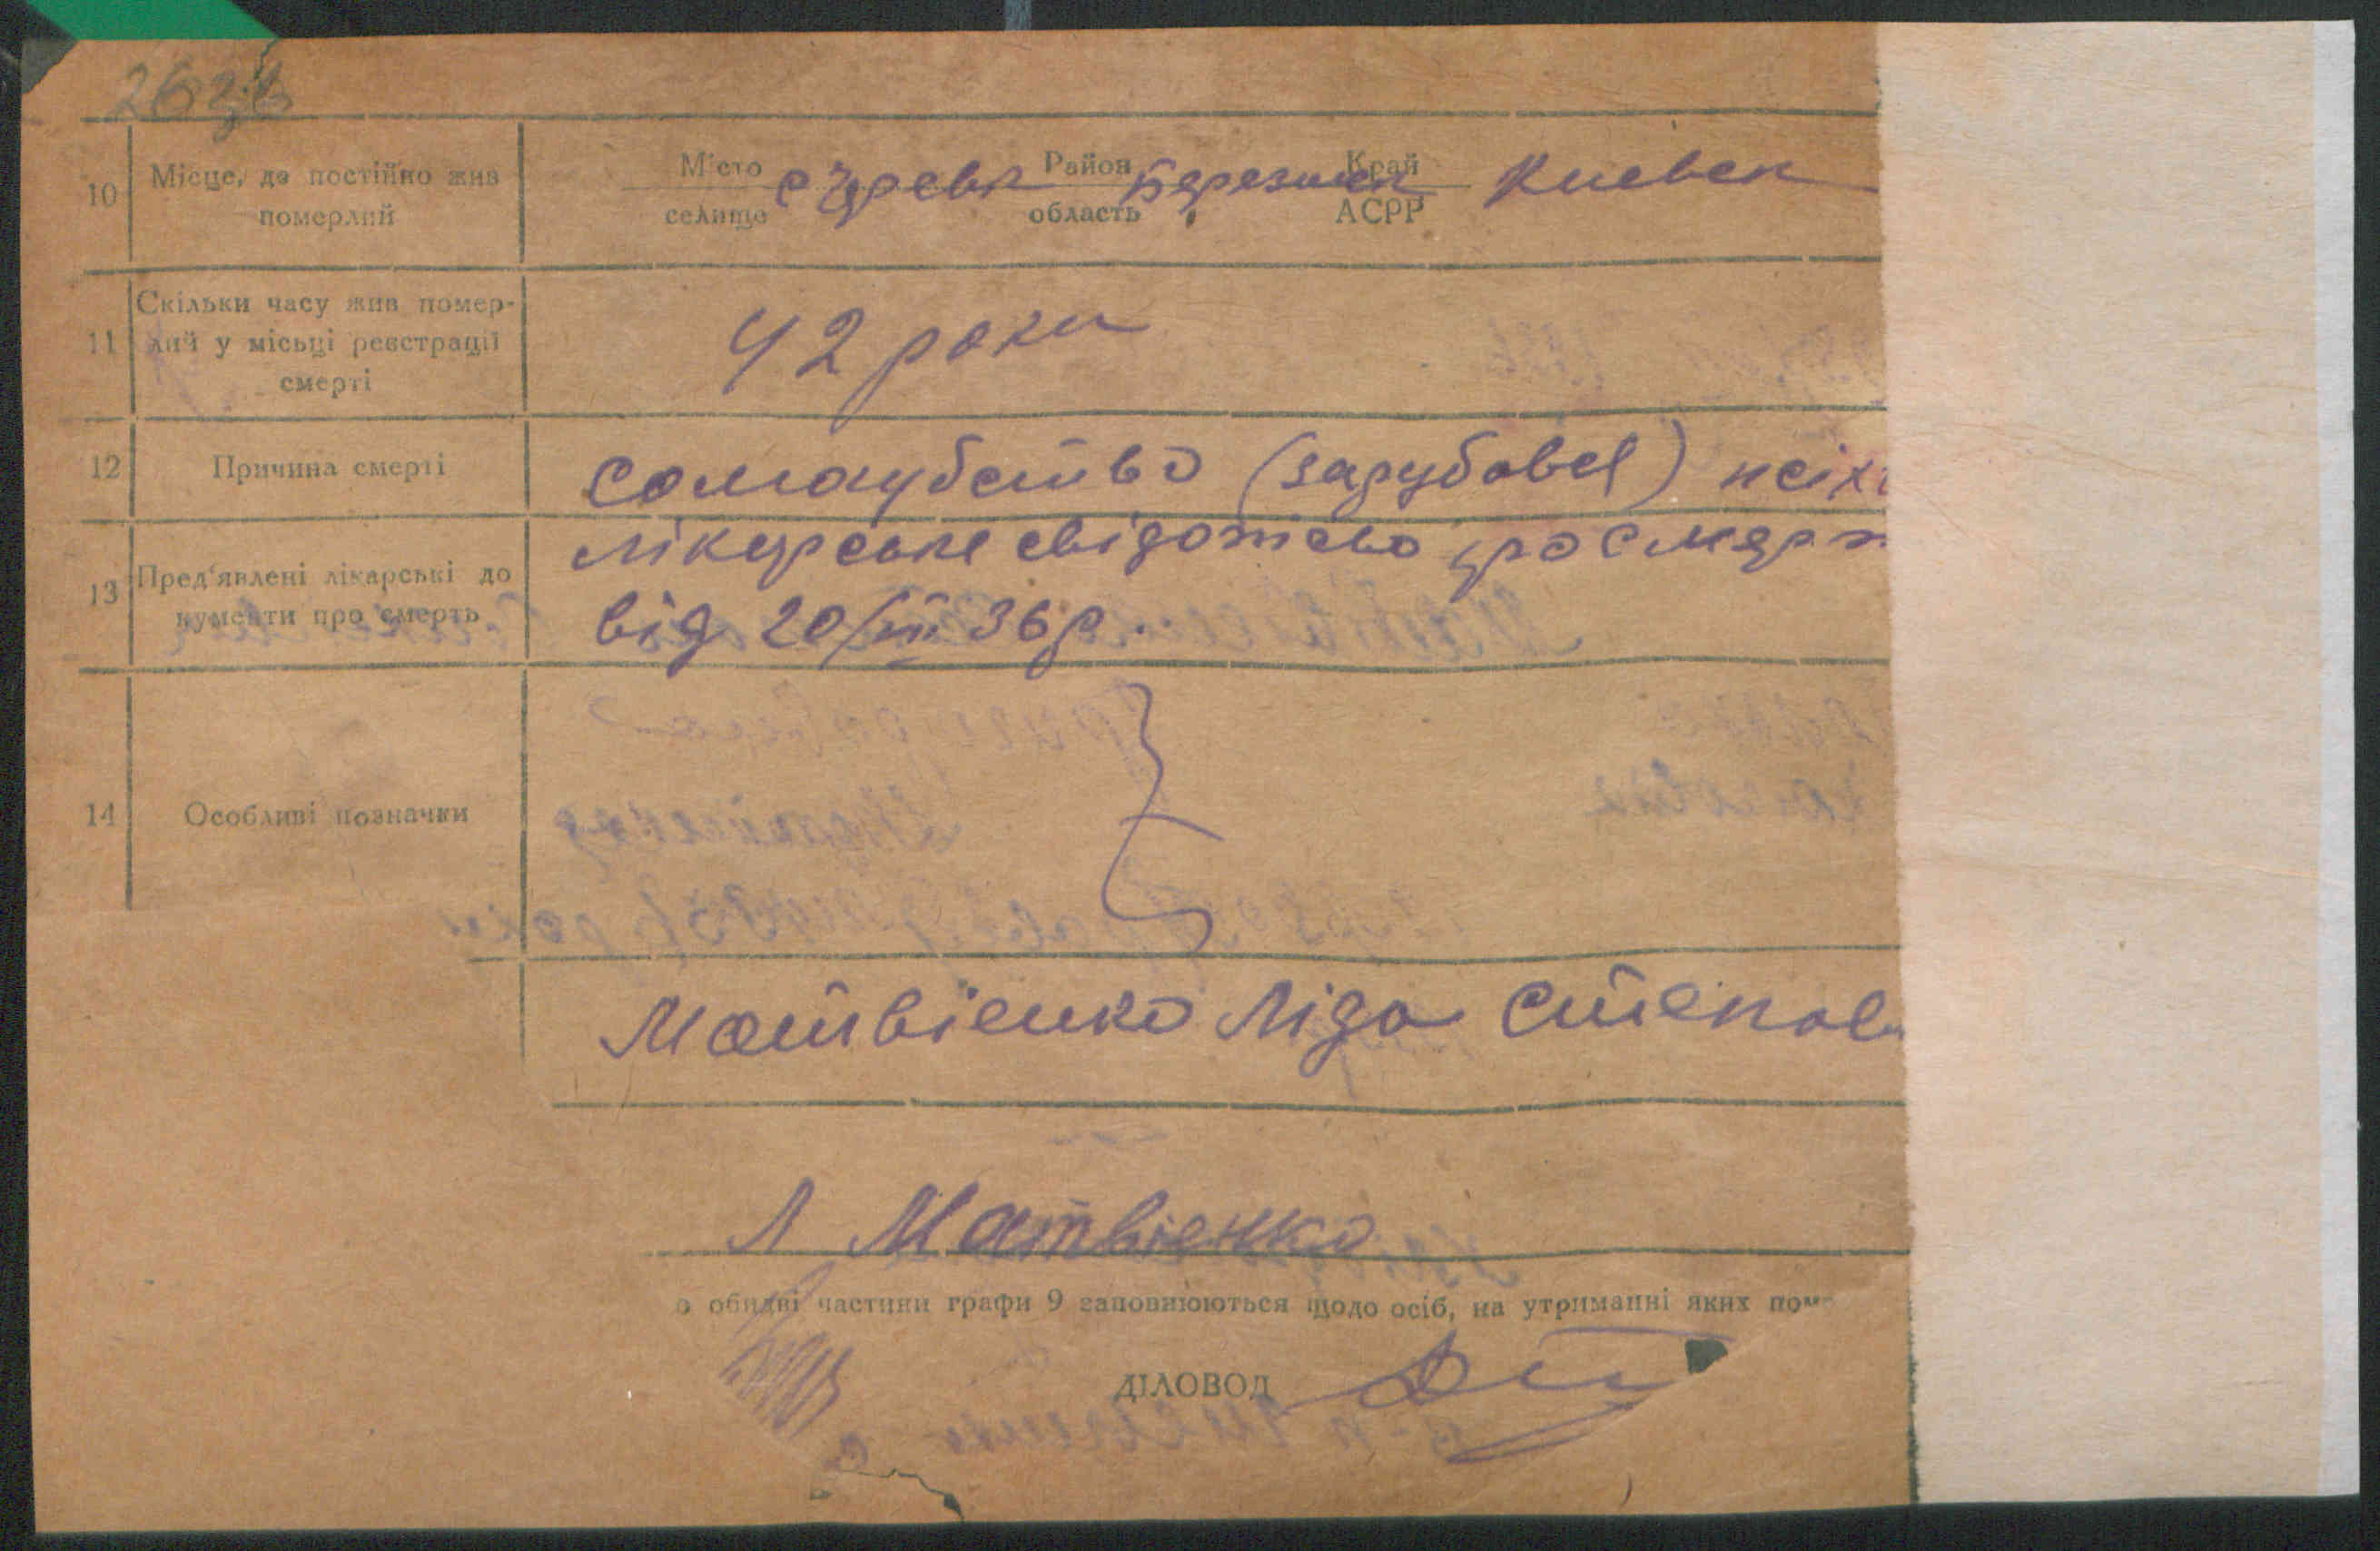 10 Місце, де постійно жив померлий
Місто селище Район область Край АСРР
Киевск
11 Скільки часу жив помер-
лий у місьці реєстрації
смерті
42 роки
12 Причина смерті
самоубство (зарубавсь) псіх
13 Пред'явлені лікарські до
кументи про смерть
лікарське свідотство про смерт
від 20/III 36 р.
14 Особливі позначки
Матвієнко Ліда Степов
Л Матвіенко
о обидві частини графи 9 заповнюються щодо осіб, на утриманні яких пом
ДІЛОВОД